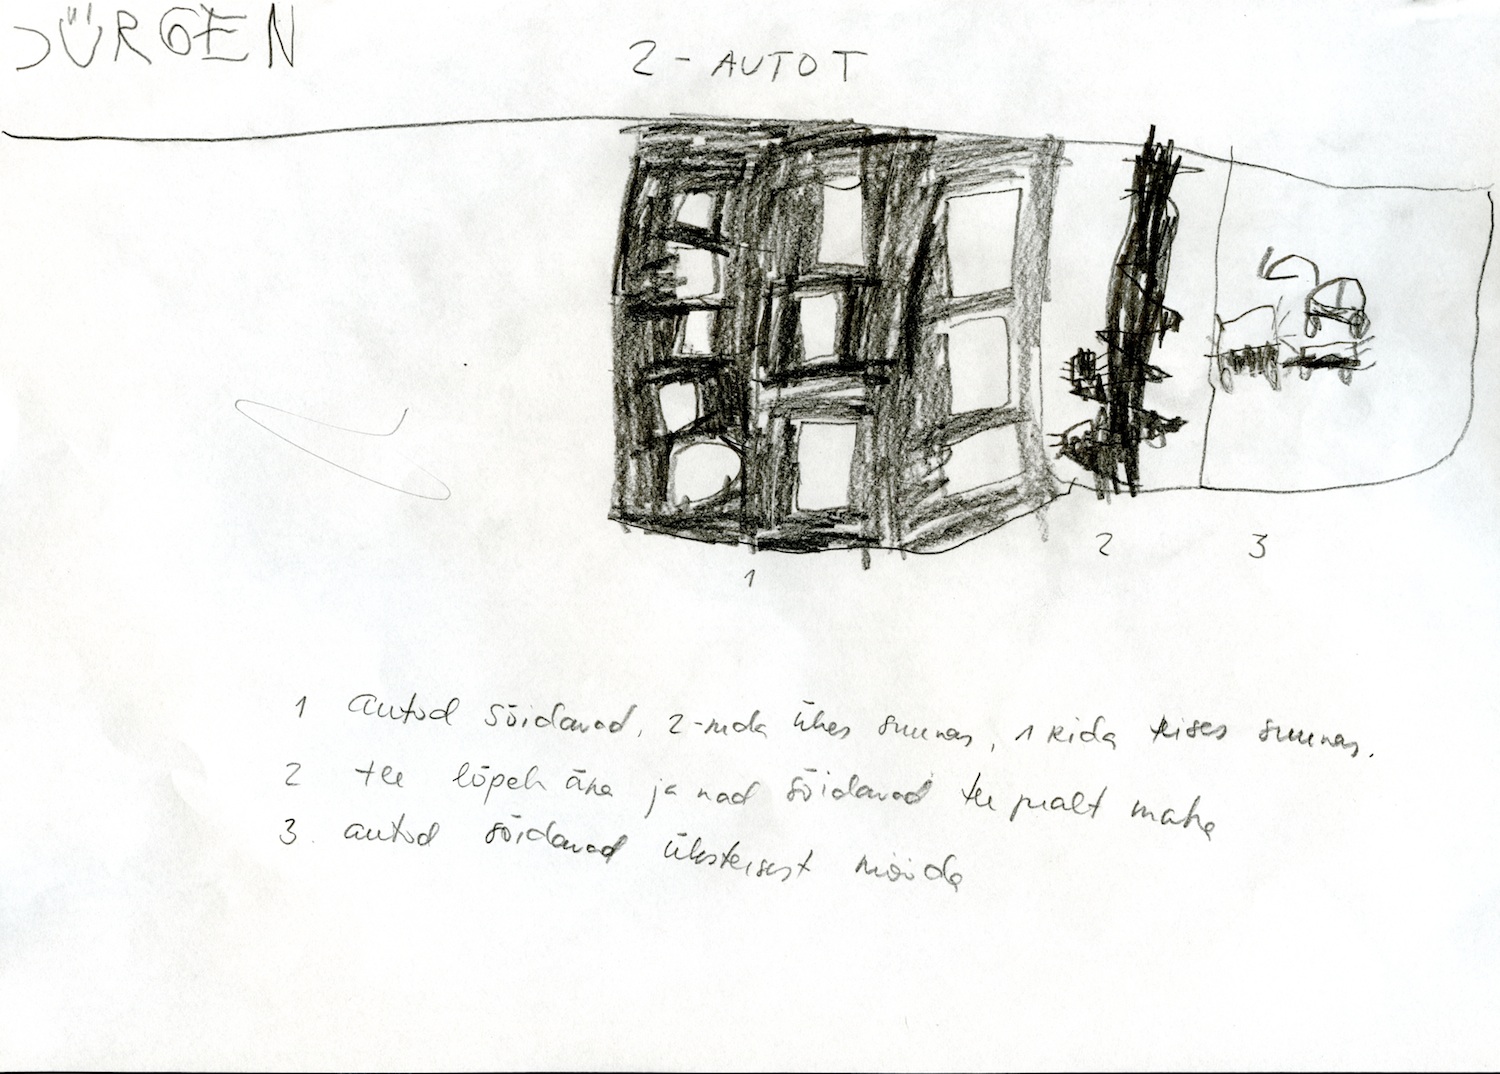 JÜRGEN
2 - AUTOT
1
2
3
1 autod sõidavad, 2-rida ühes suunas, 1 rida teises suunas.
2 tee lõpeb ära ja nad sõidavad tee pealt maha
3. autod sõidavad üksteisest mööda